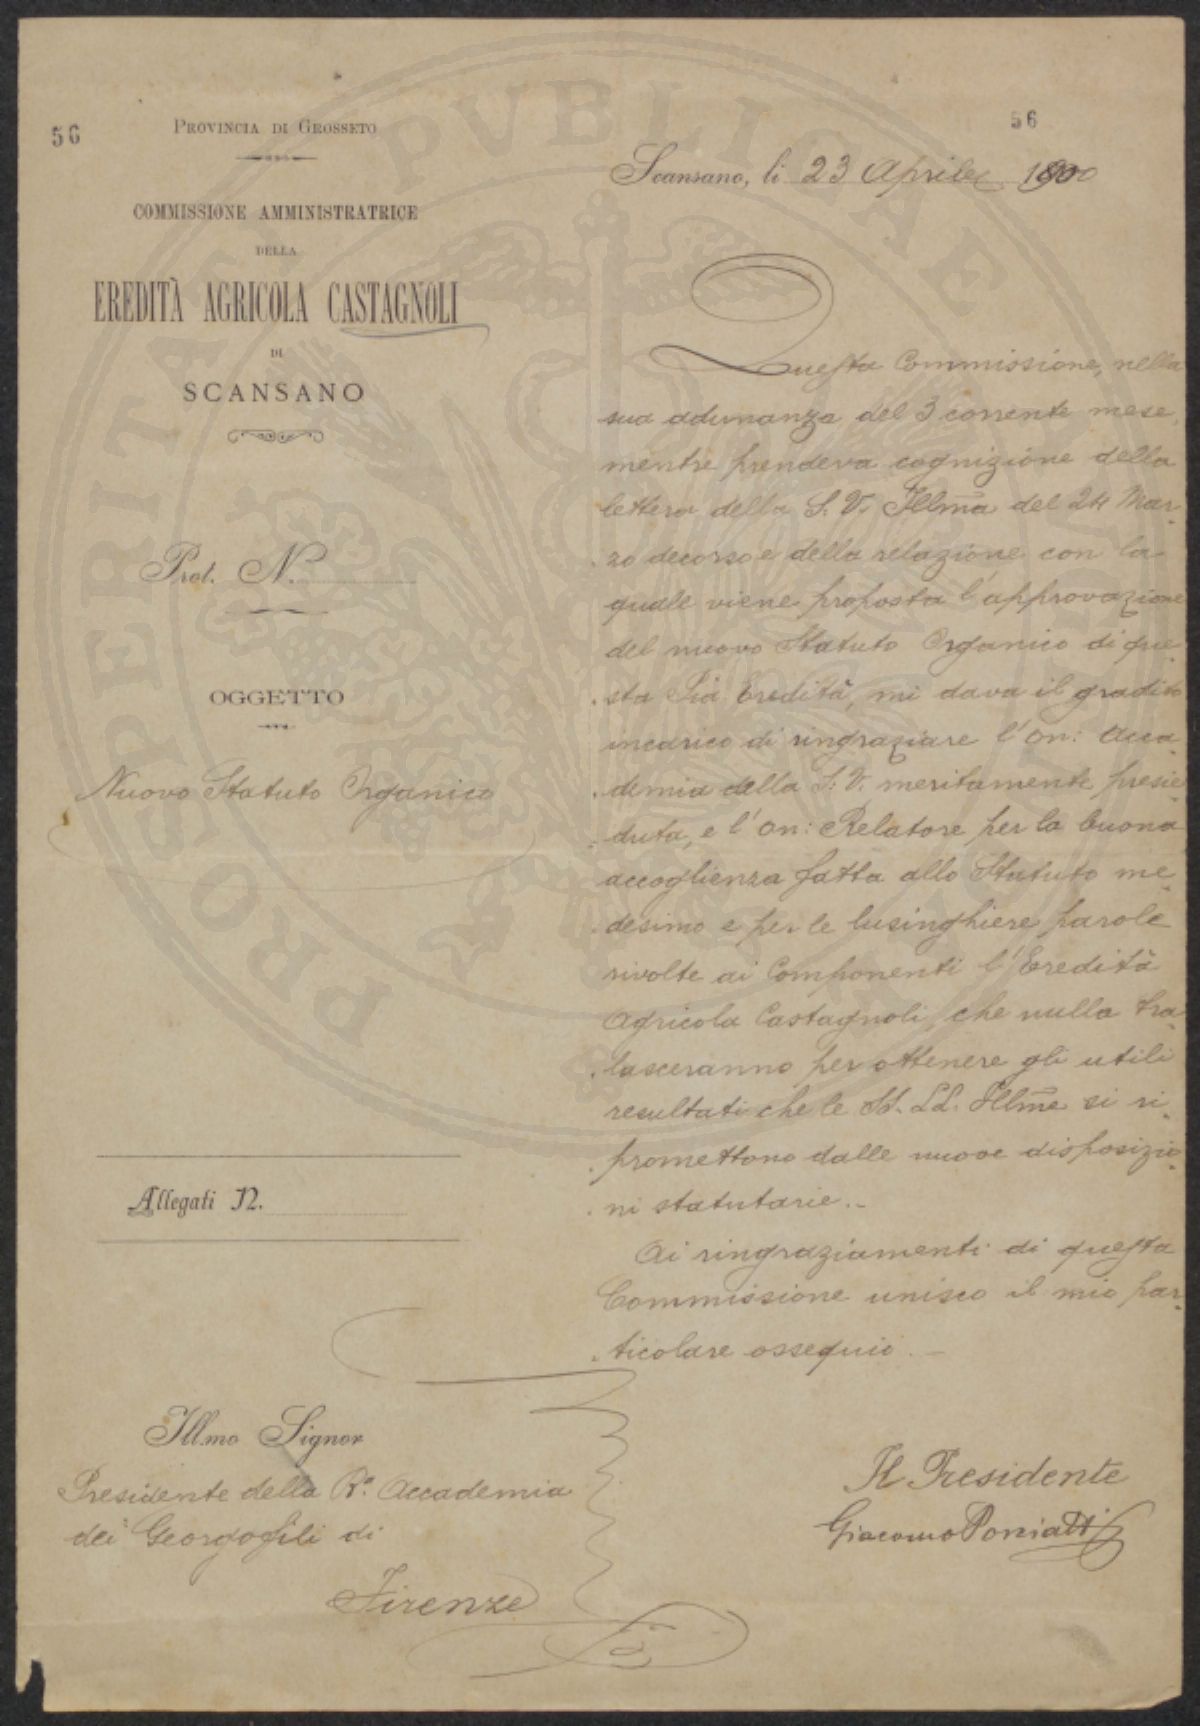 56
PROVINCIA DI GROSSETO
COMMISSIONE AMMINISTRATRICE
DELLA
EREDITÀ AGRICOLA CASTAGNOLI
DI
SCANSANO
Prot. N.
OGGETTO
Nuovo Statuto Organico
Allegati N.
Ill.mo Signor
Presidente della R.a Accademia
dei Georgofili di
Firenze
56
Scansano, li 23 Aprile 1900
Questa Commissione, nella
sua adunanza del 3 corrente mese,
mentre prendeva cognizione della
lettera della S. V. Illma del 24 Mar-
zo decorso e della relazione con la
quale viene proposta l'approvazione
del nuovo Statuto Organico di que-
sta Pia Eredità, mi dava il gradito
incarico di ringraziare l'On: Acca-
demia della S. V. meritamente presie-
duta, e l'On: Relatore per la buona
accoglienza fatta allo Statuto me-
desimo e per le lusinghiere parole
rivolte ai Componenti l'Eredità
Agricola Castagnoli, che nulla tra-
lasceranno per ottenere gli utili
resultati che le SS. LL. Illme si ri-
promettono dalle nuove disposizio-
ni statutarie.-
Ai ringraziamenti di questa
Commissione unisco il mio par-
ticolare ossequio.-
Il Presidente
Giacomo Poniatti
PROSPERITATI PUBLICAE